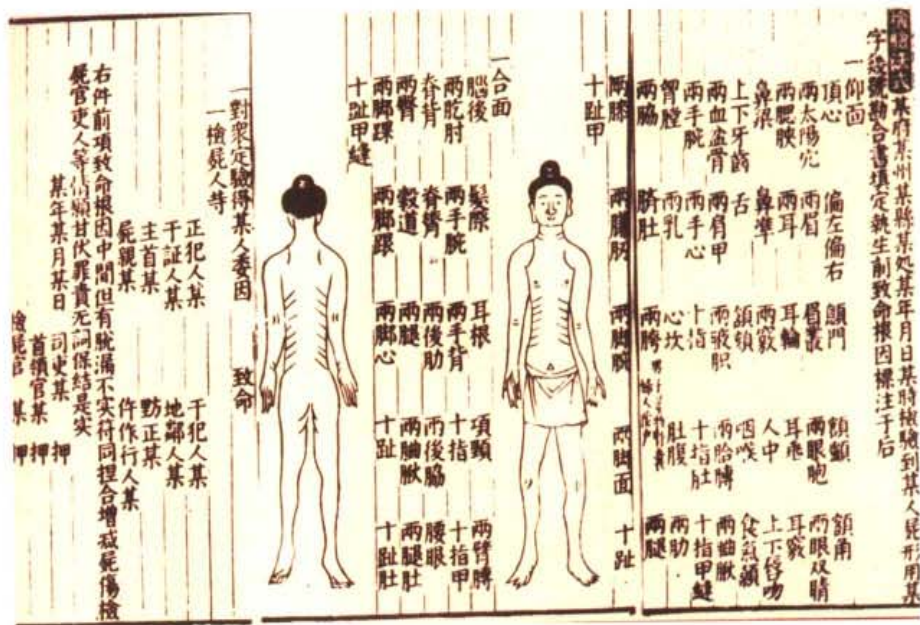 某府某州某縣某処某年月日某時檢驗到某人屍形用某
字幾號勘合書填定執生前致命根因標注于后
一仰面
頂心 偏左偏右 顖門 額顱 額角
兩太陽穴 兩眉 眉叢 兩眼胞 兩眼双睛
兩腮頰 兩耳 耳輪 耳垂 耳竅
鼻梁 鼻準 兩竅 人中 上下唇吻
上下牙齒 舌 頷頦 咽喉 食氣顙
兩血盆骨 兩肩甲 兩腋肢 兩胳膊
兩手腕 兩手心 十指 十指肚 十指甲縫
胷膛 兩乳 心坎 肚腹 兩肋
兩脇 臍肚 兩胯 兩腿
兩膝 兩臁肕 兩脚腕 兩脚面 十趾
十趾甲
一合面
腦後 髮際 耳根 項頸 兩臂膊
兩肐肘 兩手腕 兩手背 十指 十指甲
脊背 脊膂 兩後肋 兩後脇 腰眼
兩臀 穀道 兩腿 兩腿肚
兩脚踝 兩脚跟 兩脚心 十趾 十趾肚
十趾甲縫
一對衆定驗得某人委因 致命
一檢屍人等
正犯人某 干犯人某
干証人某 地鄰人某
主首某 坊正某
屍親某 仵作行人某
右件前項致命根因中間但有脫漏不實符同捏合增减屍傷檢
屍官吏人等情願甘伏罪責无詞保結是實
某年某月某日 司吏某 押
首領官某 押
檢屍官 某 押